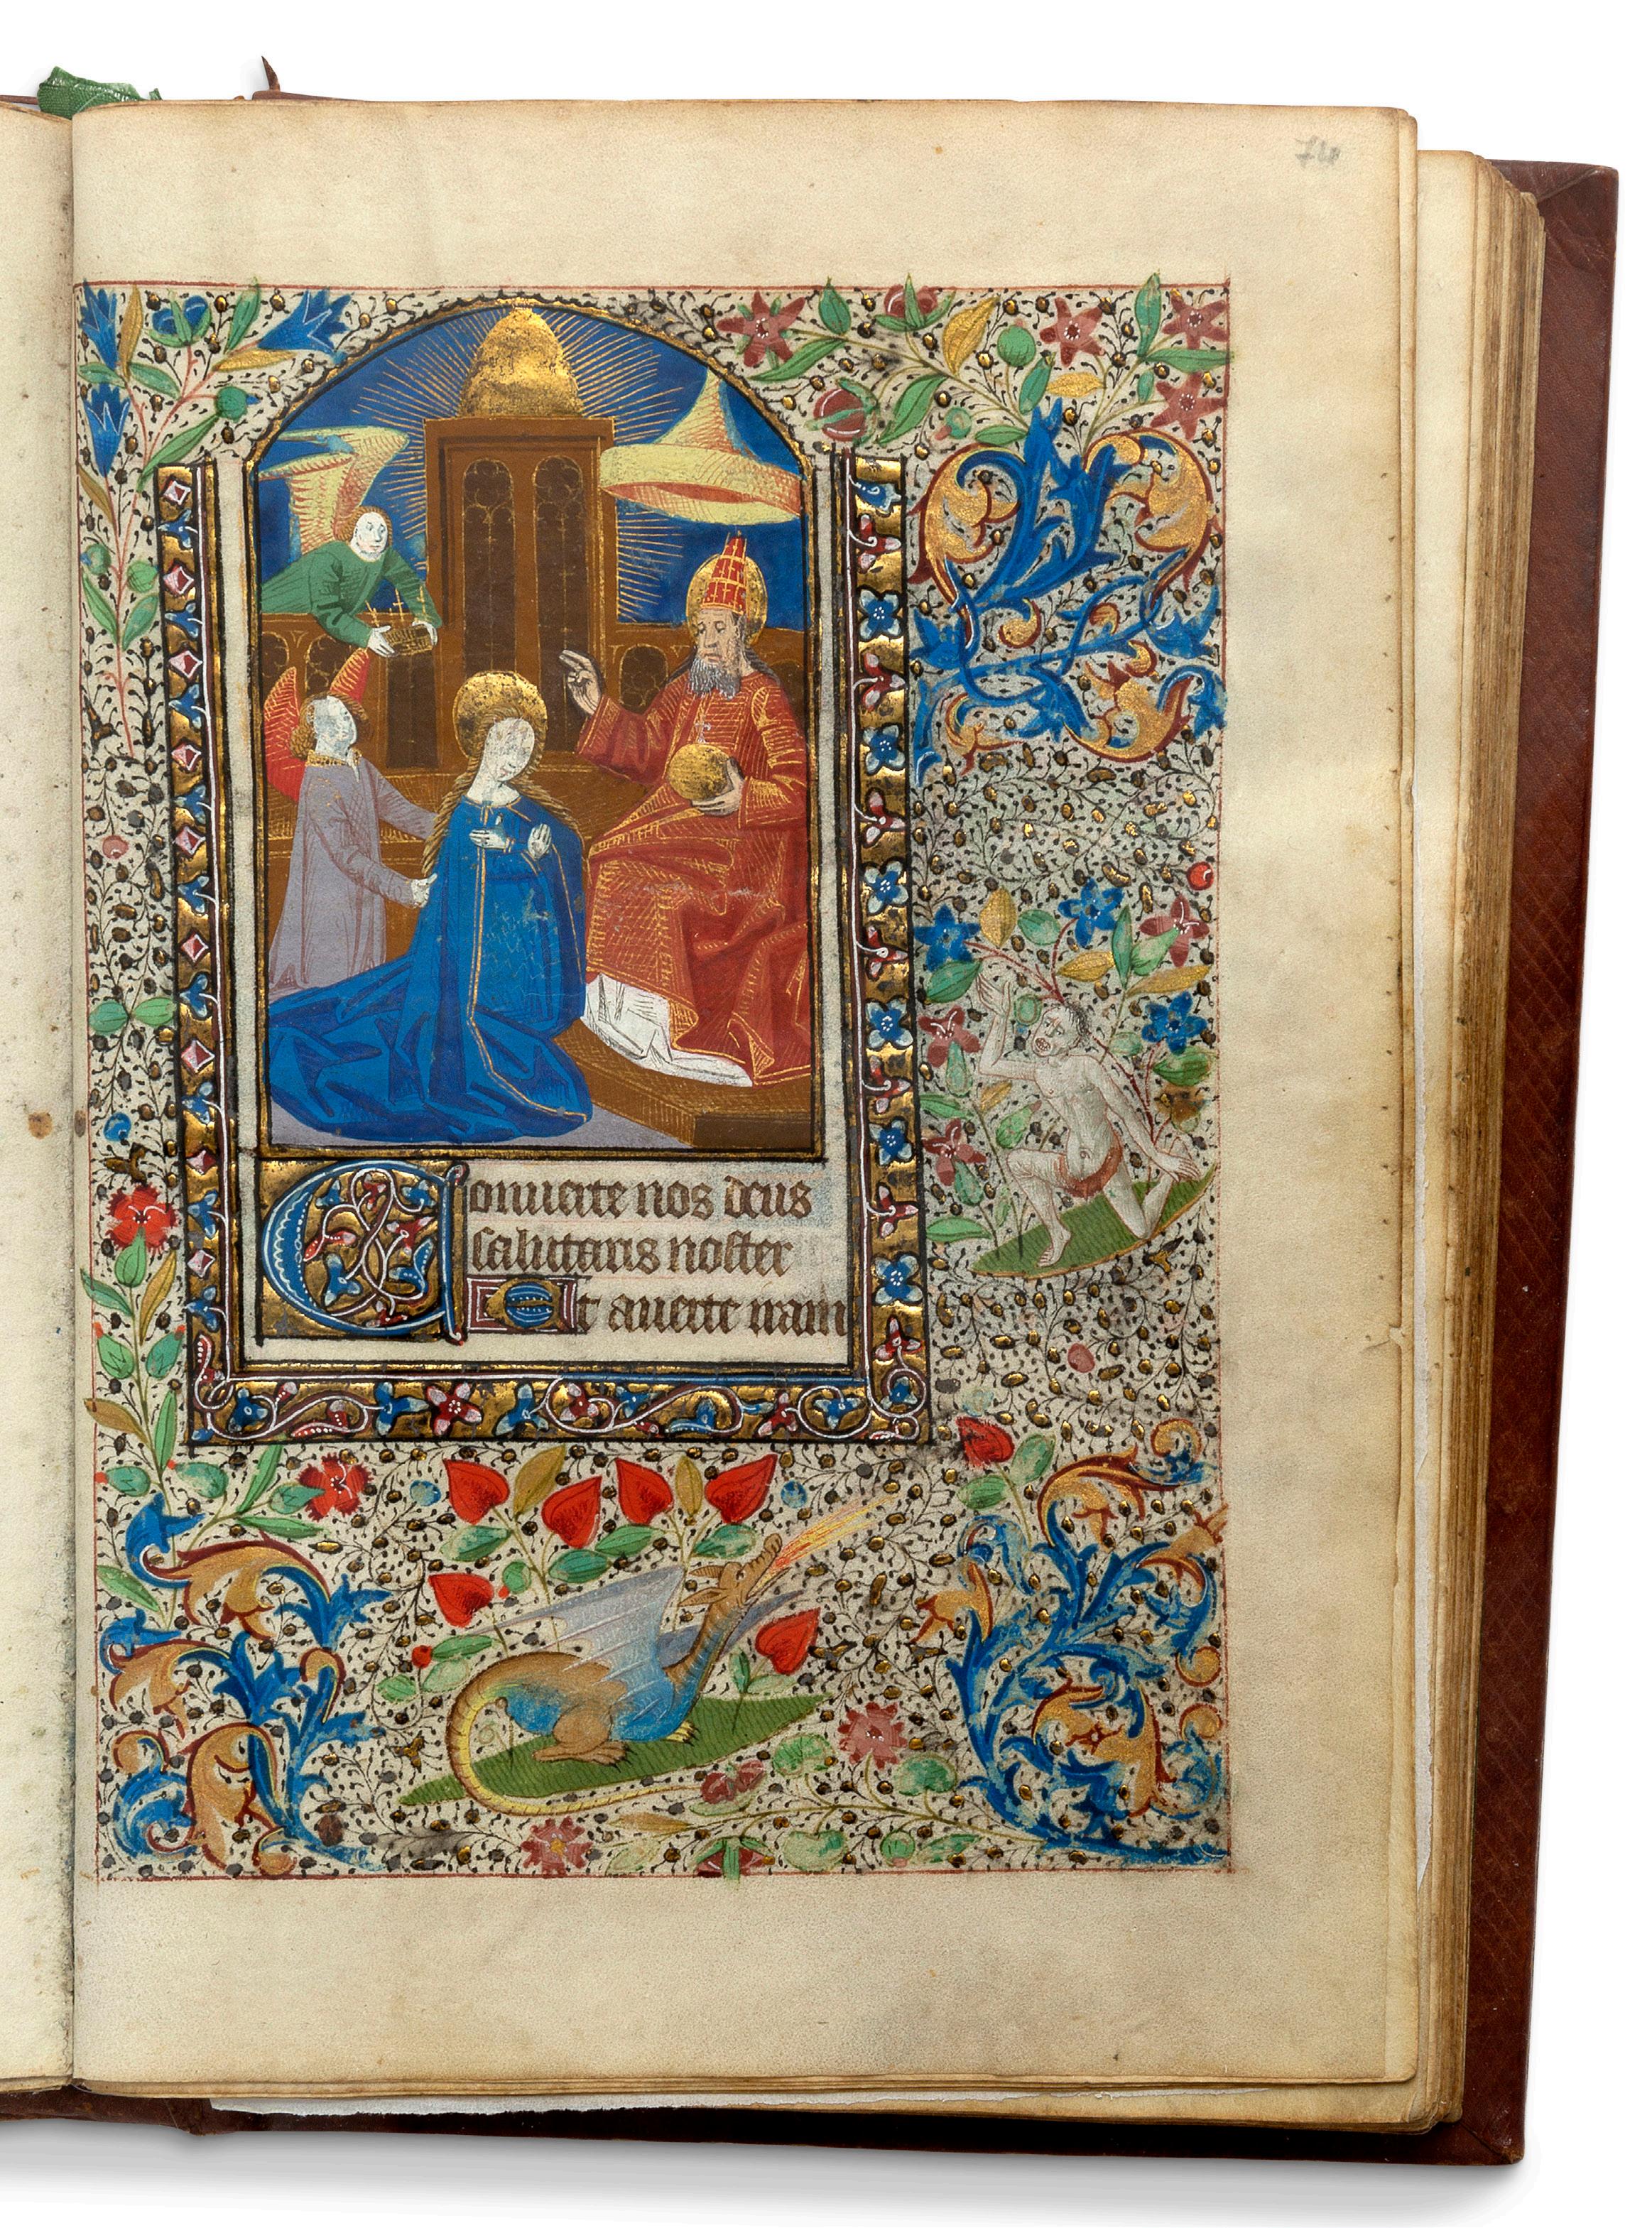 74
Conuerte nos deus
salutaris noster
Et auerte iram